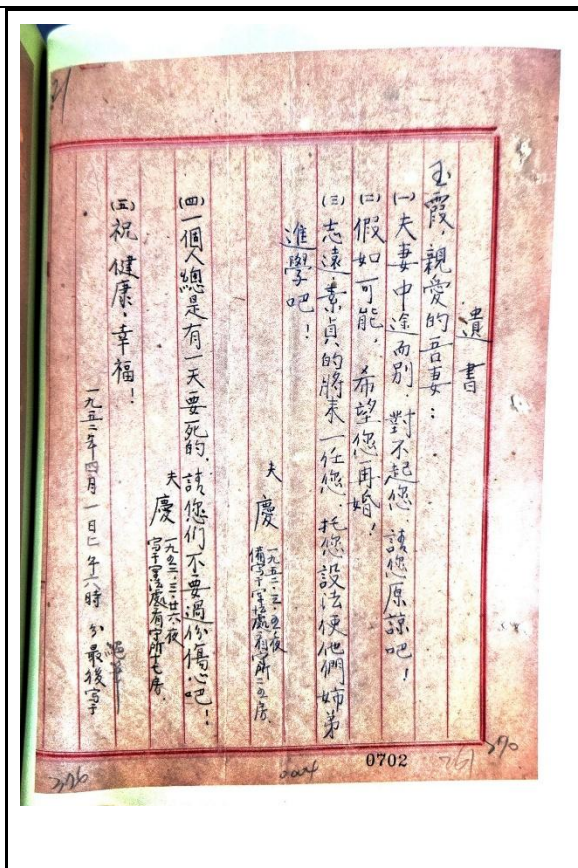 遺書
玉霞,親愛的吾妻:
㈠夫妻中途而別,對不起您,請您原諒吧!
㈡假如可能,希望您再婚!
㈢志遠、素貞的將來一任您,托您設法使他們姉弟
進學吧!
夫 慶
一九五二.三.五夜
備寫于軍法處看守所二五房.
㈣一個人總是有一天要死的,請您們不要過份傷心吧!
夫 慶
一九五二.三.廿六夜
寫于軍法處看守所十七房.
㈤祝健康,幸福!
一九五二年四月一日 午六時 分最後寫于
21
376
0702
261
270